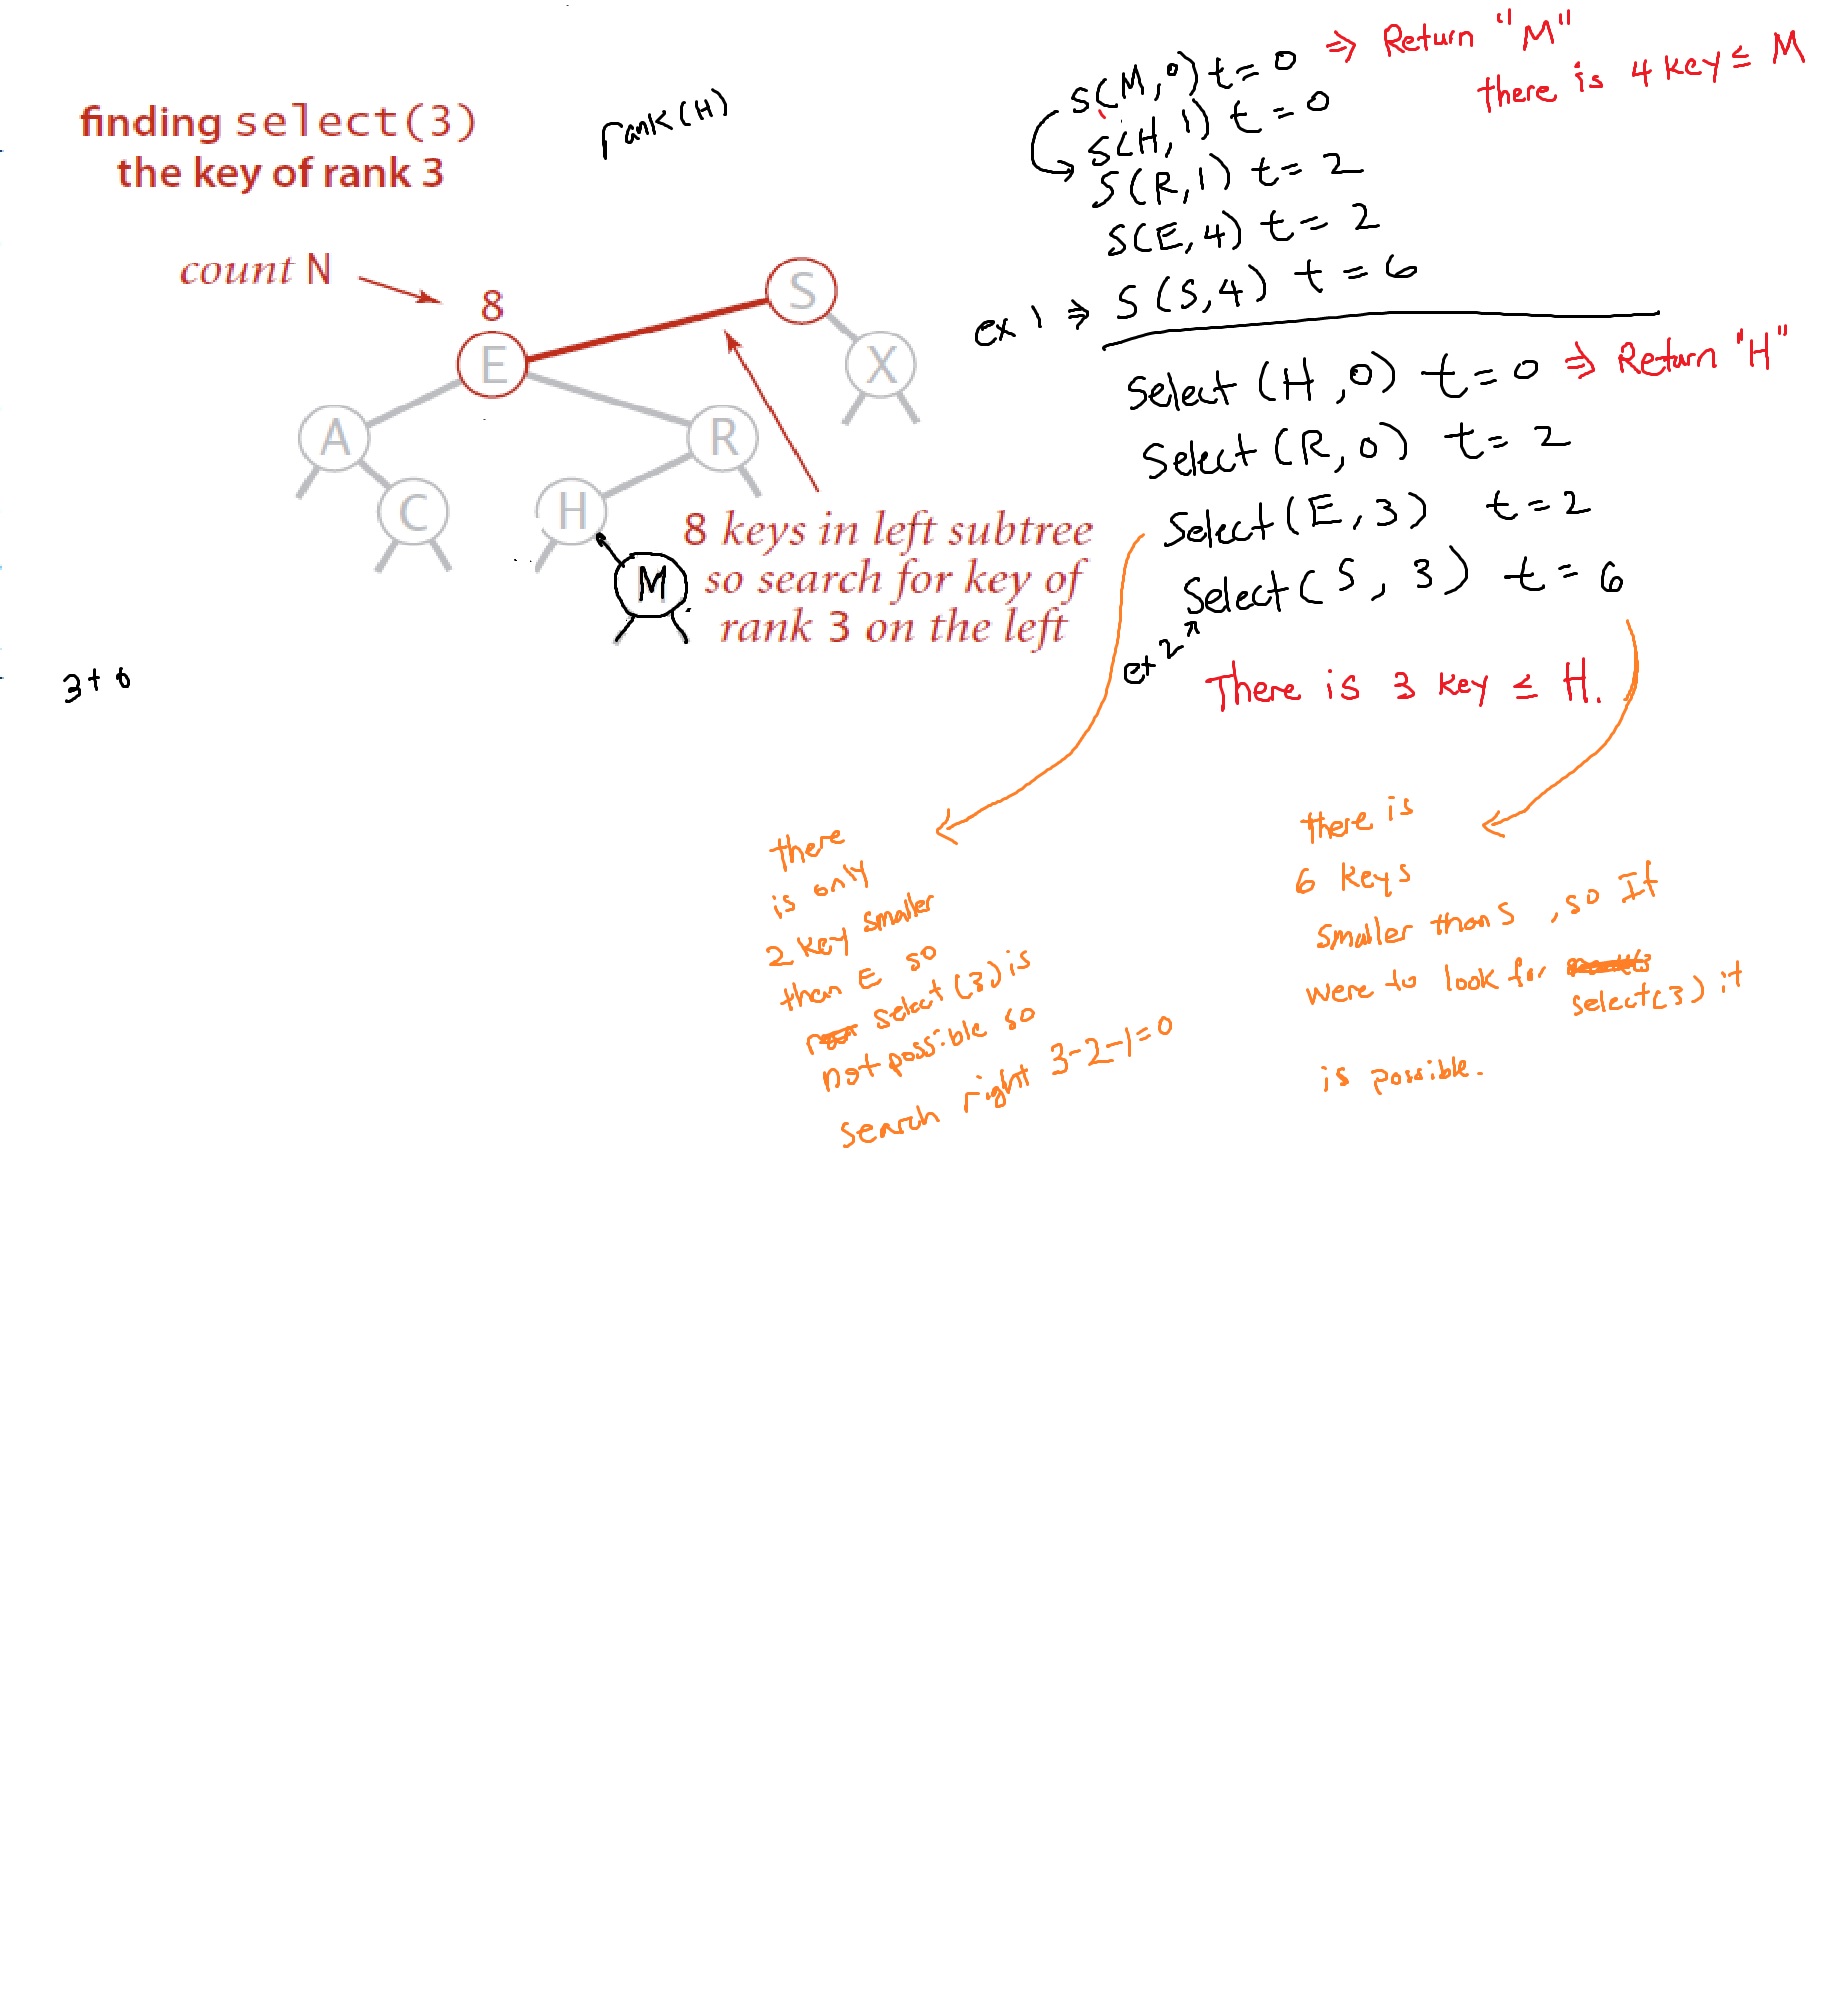 finding select(3)
the key of rank 3
rank(H)
count N
8
E
S
X
A
R
C
H
M
8 keys in left subtree
so search for key of
rank 3 on the left
3+6
S(M,0) t=0 ⇒ Return "M"
there is 4 key ≤ M
S(H,1) t=0
S(R,1) t=2
S(E,4) t=2
ex 1 ⇒ S(S,4) t=6
Select (H,0) t=0 ⇒ Return "H"
Select (R,0) t=2
Select (E,3) t=2
Select (S,3) t=6
ex 2
There is 3 key ≤ H.
there
is only
2 key smaller
than E so
select (3) is
not possible so
search right 3-2-1=0
there is
6 keys
smaller than S, so If
were to look for
select(3) it
is possible.